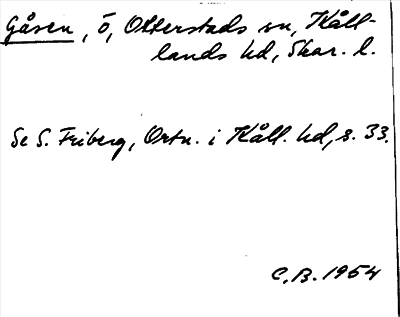 Gåsen, ö, Otterstads sn, Kåll-
lands hd, Skar. l.
Se S. Friberg, Ortn. i Kåll. hd, s. 33.
C.B. 1954